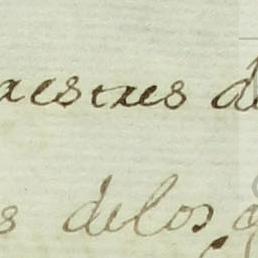 aestres de
s delos q